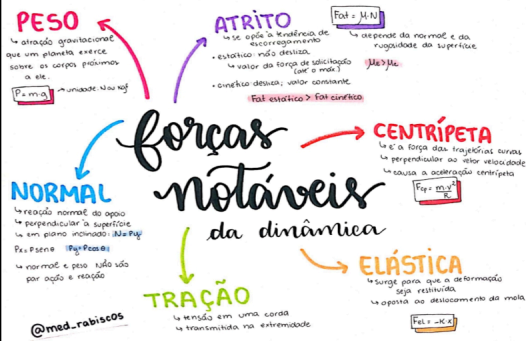 PESO
↳ atração gravitacional
que um planeta exerce
sobre os corpos próximos
a ele.
P = m·g → unidade: N ou kgf
ATRITO
↳ se opõe à tendência de
escorregamento
• estático: não desliza
↳ valor da força de solicitação
(até o máx.)
• cinético desliza; valor constante
Fat estático > Fat cinético
Fat = μ·N
↳ depende da normal e da
rugosidade da superfície
μe > μc
forças
notáveis
da dinâmica
CENTRÍPETA
↳ é a força das trajetórias curvas
↳ perpendicular ao vetor velocidade
↳ causa a aceleração centrípeta
Fcp = m·v²
R
NORMAL
↳ reação normal do apoio
↳ perpendicular à superfície
↳ em plano inclinado: N = Py
Px = P senθ Py = P cosθ
↳ normal e peso NÃO são
par ação e reação
TRAÇÃO
↳ tensão em uma corda
↳ transmitida na extremidade
ELÁSTICA
↳ surge para que a deformação
seja restituída
↳ oposta ao deslocamento da mola
Fel = -K·x
@med_rabiscos